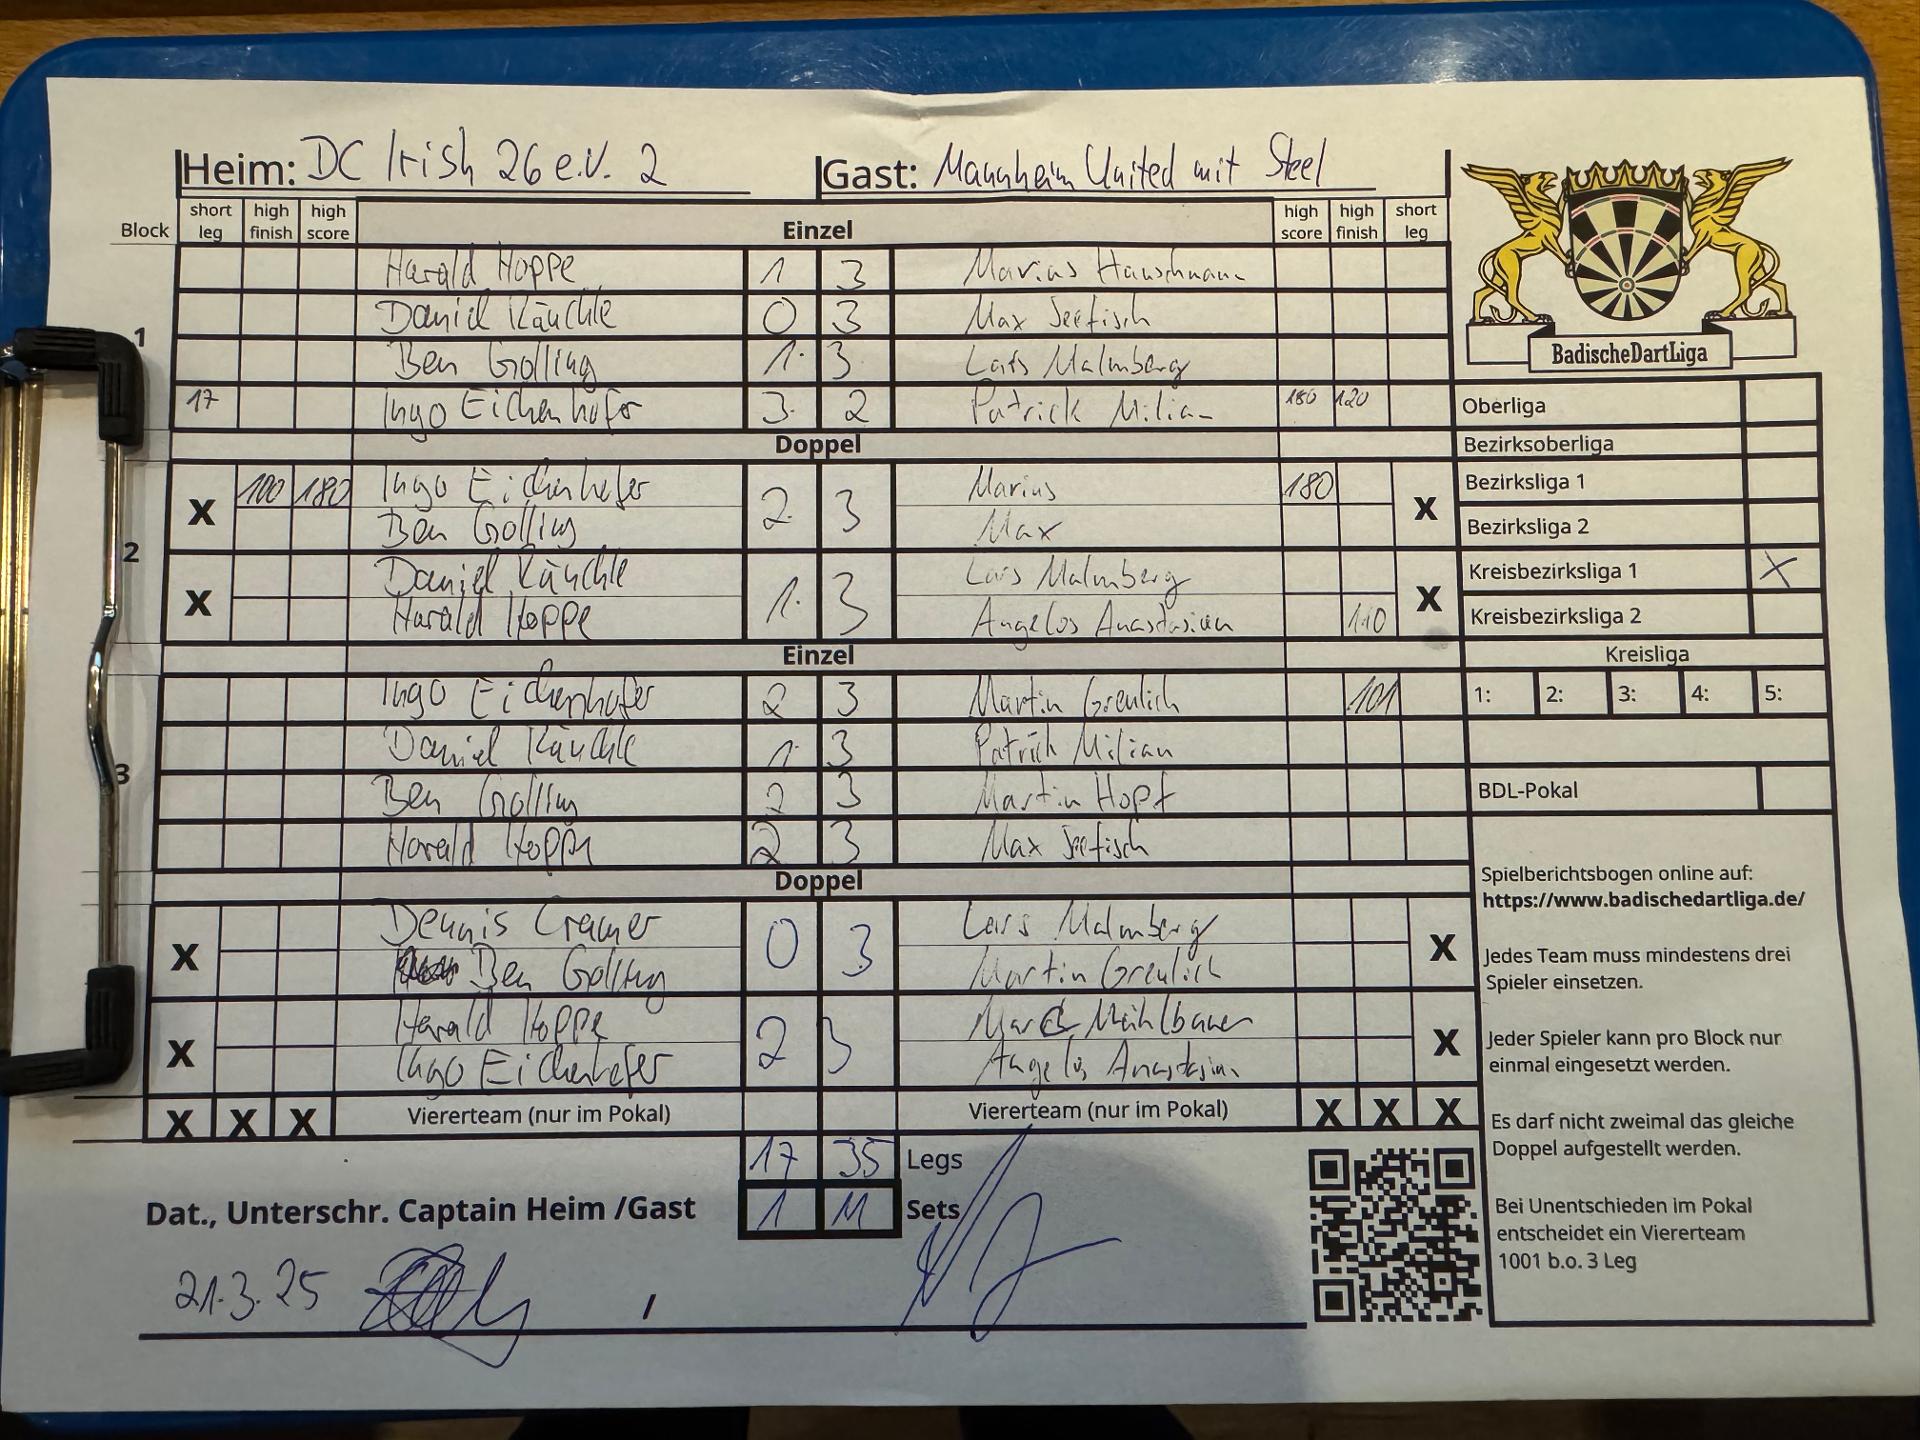 Heim: DC Irish 26 e.V. 2 Gast: Mannheim United mit Steel
Block short leg high finish high score Einzel high score high finish short leg
Harald Hoppe 1 3 Marius
1 Daniel Käuchle 0 3 Max Seefisch
Ben Golling 1 3 Lars Malmberg
17 Ingo Eichenhofer 3 2 Patrick Milian 180 120
Doppel
2
X 100 180 Ingo Eichenhofer 2 3 Marius 180 X
Ben Golling Max
X Daniel Käuchle 1 3 Lars Malmberg X
Harald Hoppe Angelos Anastasiou 110
Einzel
3
Ingo Eichenhofer 2 3 Martin Greulich 101
Daniel Käuchle 1 3 Patrick Milian
Ben Golling 2 3 Martin Hopf
Harald Hoppe 2 3 Max Seefisch
Doppel
X Dennis Cramer 0 3 Lars Malmberg X
Ben Golling Martin Greulich
X Harald Hoppe 2 3 Marc Mühlbauer X
Ingo Eichenhofer Angelos Anastasiou
X X X Viererteam (nur im Pokal) Viererteam (nur im Pokal) X X X
17 35 Legs
Dat., Unterschr. Captain Heim /Gast 1 11 Sets
21.3.25 /
BadischeDartLiga
Oberliga
Bezirksoberliga
Bezirksliga 1
Bezirksliga 2
Kreisbezirksliga 1 X
Kreisbezirksliga 2
Kreisliga
1: 2: 3: 4: 5:
BDL-Pokal
Spielberichtsbogen online auf:
https://www.badischedartliga.de/
Jedes Team muss mindestens drei
Spieler einsetzen.
Jeder Spieler kann pro Block nur
einmal eingesetzt werden.
Es darf nicht zweimal das gleiche
Doppel aufgestellt werden.
Bei Unentschieden im Pokal
entscheidet ein Viererteam
1001 b.o. 3 Leg